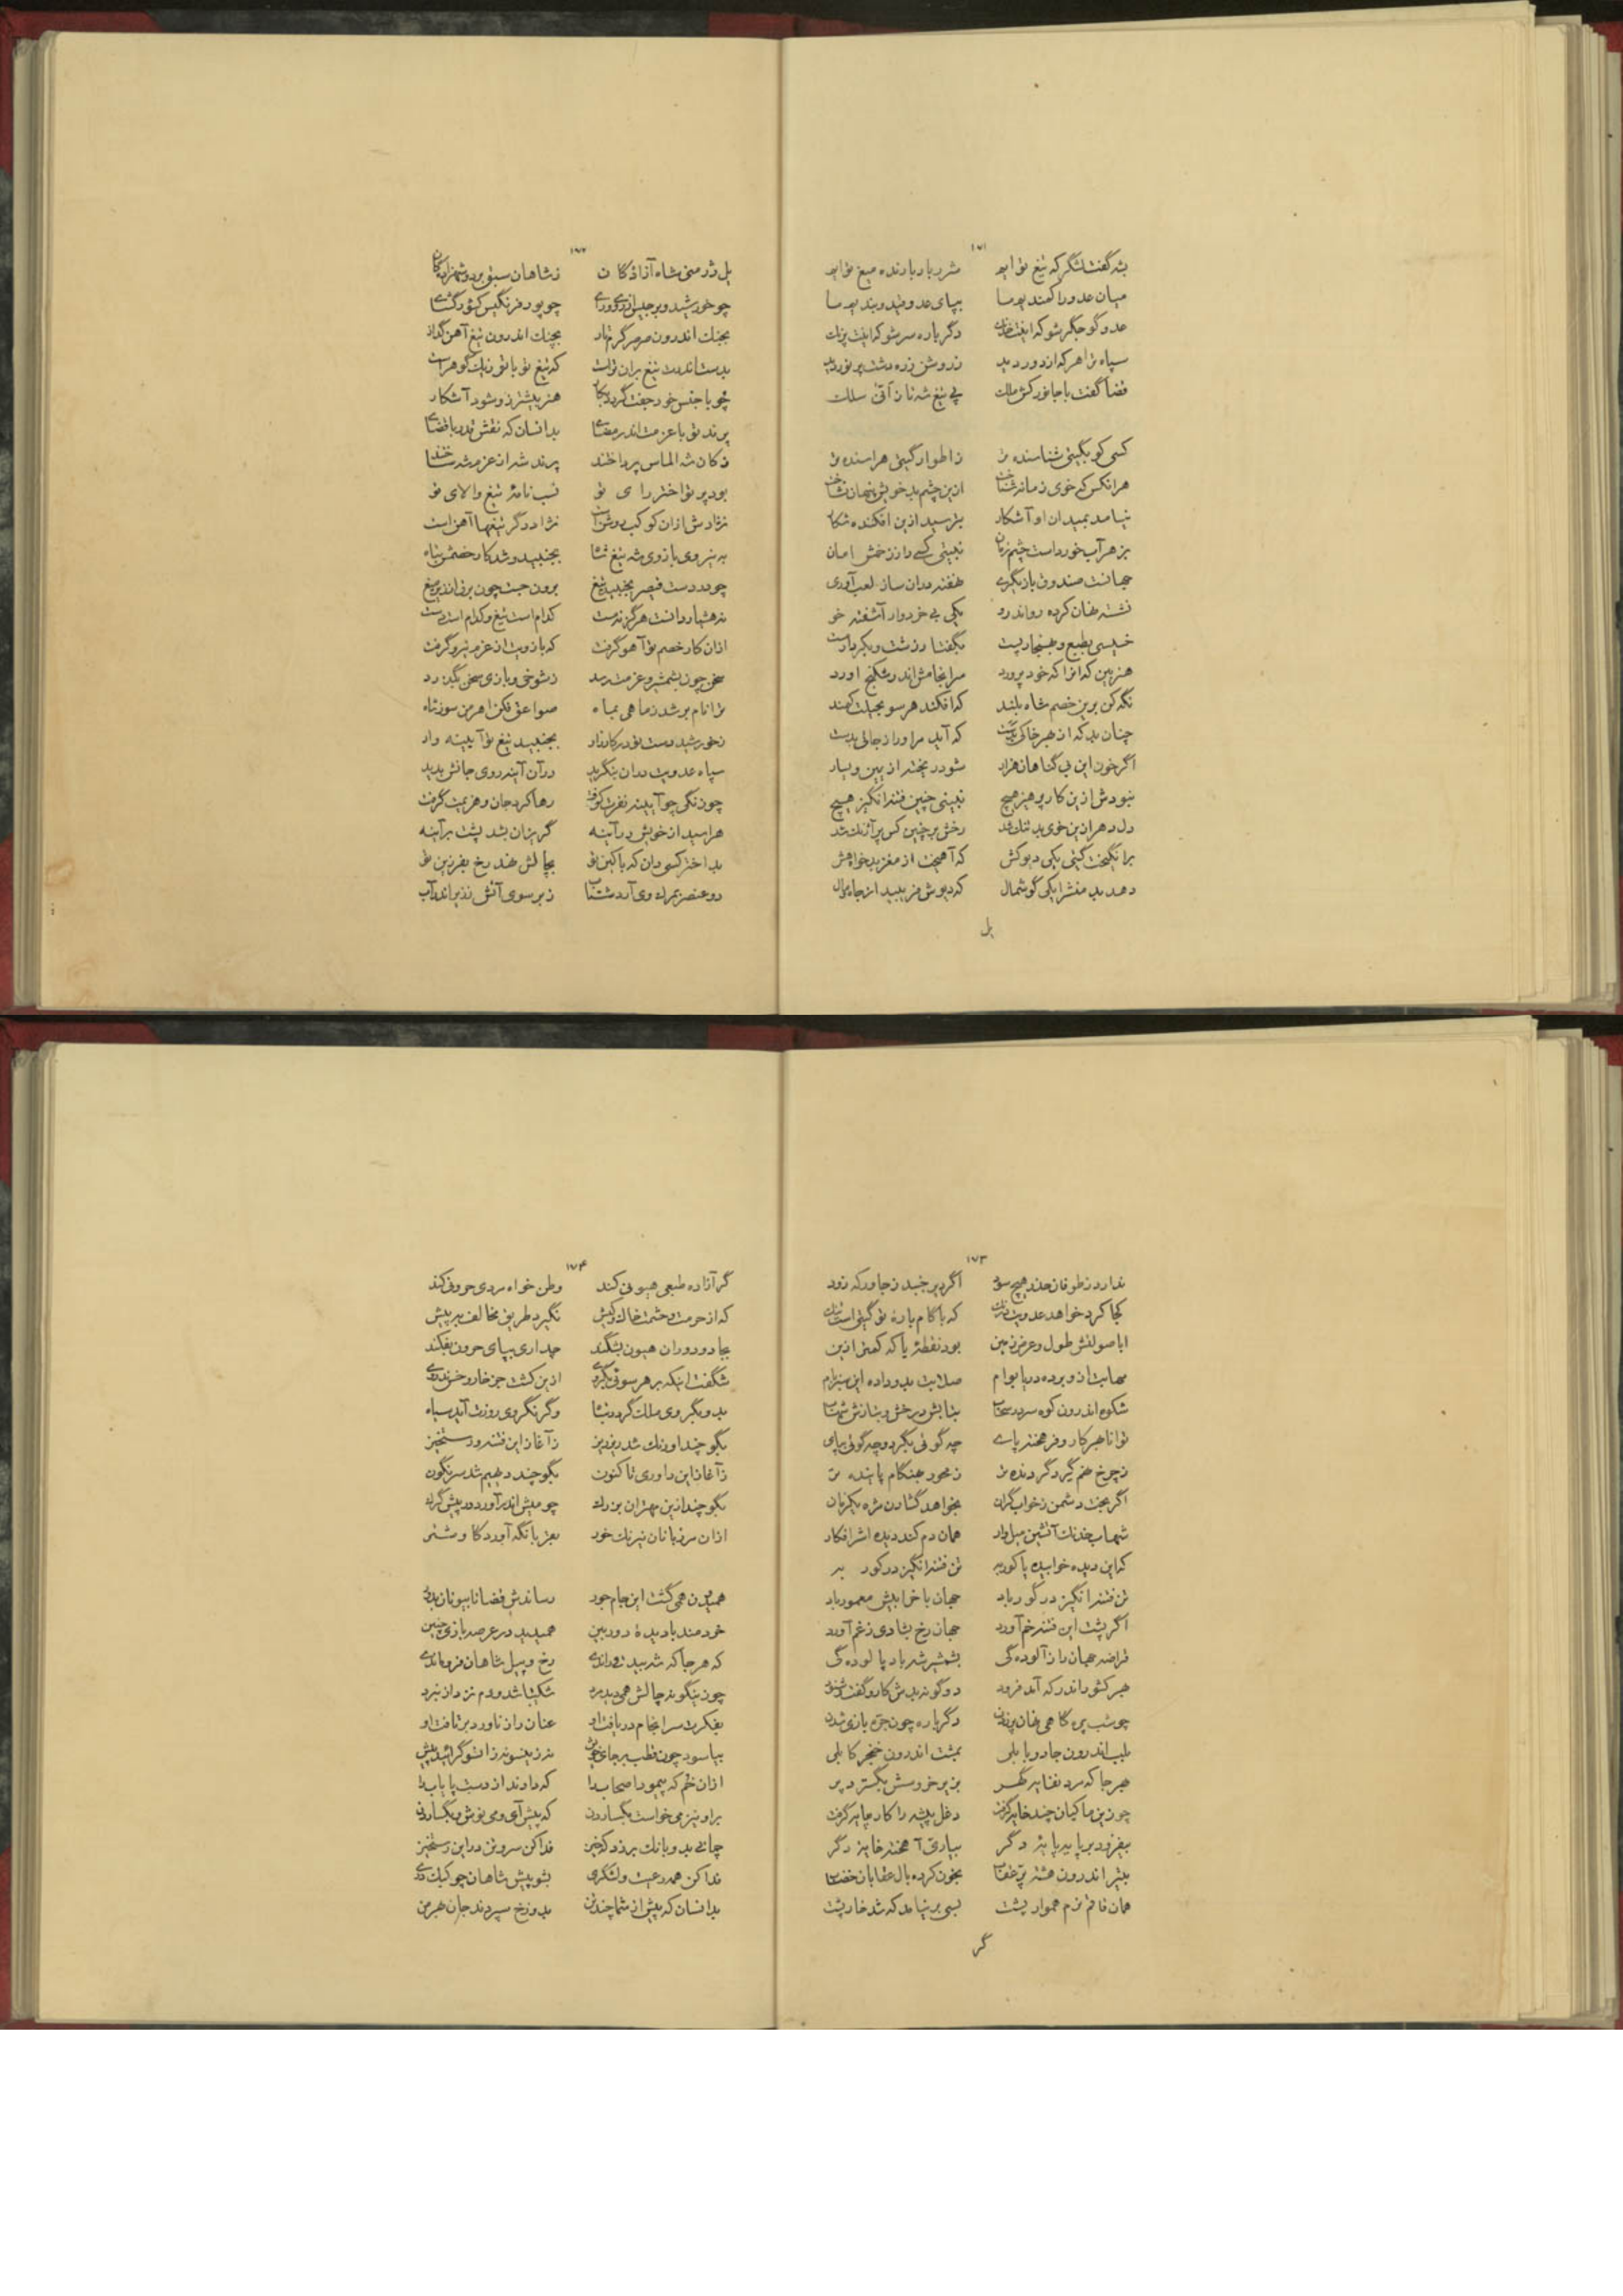 ۱۷۱
بشه گفت لشگر که تیغ توایم شرربار بارنده میغ توایم
میان عدو را کمندیم ما بپای عدو قید و بندیم ما
عدو گو جگر شو که دگر باره سر شو که
سپاه ترا هر که از دور دید ز روشن زره دشت پر نور دید
قضا گفت با جانور کش ملک پی تیغ شه تا ز آتش سلک
کسی کو بگیتی شناسنده تر ز اطوار گیتی هراسنده تر
هر انکس که خوی زمانه شناخت ازین چشم بد خویش پنهان نشاخت
نیامد بمیدان او آشکار بترسید ازین افکنده شکار
بزهر آب خورداست چشم زمان نبینی کسی را ز زخمش امان
جهانست صندوق بازیگری نهفته دران ساز لعب آوری
نشسته نهان کرده رواندرو یکی بی خرد وار آشفته خو
خسیسی بطبع و بهنجار پست بگفتار زشت و بکردار پست
هنر بین که انرا که خود پرورد سرانجامش اندر شکنج آورد
نگه کن برین خصم شاه بلند که افکند هر سو بحیلت کمند
چنان بد که از هر خاکی که آید مر او را ز جائی بدست
اگر خون این بی گناهان هزار شود ریخته از یمین و یسار
نبودش ازین کار پرهیز هیچ نبینی چنین فتنه انگیز هیچ
دل دهر ازین خوی بد تنک شد رخش بر چنین کس پر آژنک شد
برانگیخت گیتی یکی دیوکش که آهیخت از مغز بدخواه هش
دهد بد منشرا یکی گوشمال که دیوش فریبید از جاه و مال
یل
۱۷۲
یل ذر منی شاه آزادگان ز شاهان سبق برد و شهزادگان
چو خورشید و برجیس چو پور فرنگیس کشور گشای
بجنک اندرون صرصر گرم تاز بجنک اندرون تیغ آهن گداز
بدست اندرت تیغ بران تراست که تیغ تو با تو ز یک گوهر است
چو با جنس خود جفت گردد بکار هنر بیشتر زو شود آشکار
پرند تو با عزمت اندر مضای بدانسان که نقش قدر با قضای
ز کان شه الماس پرداختند پرند شه از عزم شه ساختند
بود پرتو اختر رای تو نسب نامهٔ تیغ والای تو
نژادش ازان کوکب روشن است نژاد دگر تیغها آهن است
به نیروی بازوی شه تیغ شاه بجنبید و شد کار خصمش تباه
چو در دست قیصر بجنبید تیغ برون جست چون برق اندر میغ
نه هشیار دانست هرگز نه مست کدام است تیغ و کدام است دست
ازان کار خصم تو آهو گرفت که بازویت از عزم نیرو گرفت
سخن چون بشمشیر و عزمت رسد ز شوخی و بازی سخن بگذرد
ترا نام بر شد ز ماهی بماه صواعق فکن اهرمن سوز شاه
ز خورشید دست تو در کارزار بجنبید تیغ تو آیینه وار
سپاه عدویت دران بنگرید در آن آینه روی جانش بدید
چو زنگی چو آیینه نفرت گرفت رها کرد جان و هزیمت گرفت
هراسید از خویش در آینه گریزان بشد پشت بر آینه
بداختر کسی دان که با کین تو بچالش نهد رخ بفرزین تو
دو عنصر بمرک وی آرد شتاب ز بر سوی آتش ز زیر اندر آب
۱۷۳
ندارد ز طوفان حذر هیچ سود اگر بر جنبد ز جا ور که زود
کجا کرد خواهد عدویت درنک که با گام بارهٔ تو گیتی است تنک
ابا صولتش طول و عرض زمین بود نقطهٔ یا که کمتر ازین
مهابت ازو برده دریا بوام صلابت بدو داده این سبز بام
شکوه اندرون کوه سردر سحاب بتابش درخش و بتازش شهاب
توانا هر کار و فرهخته پای چه گوئی بگرد و چه گوئی بپای
ز چرخ خم گیر گردنده تر ز محور هنگام پاینده تر
اگر بخت دشمن ز خواب گران بخواهد گشادن مژه یکزمان
شهاب خدنک آتشین میل وار همان دم کند دیده اش را فکار
که این دیده خوابیده یا کور به تن فتنه انگیز در گور به
تن فتنه انگیز در گور باد جهان با خرابیش معمور باد
اگر پشت این فتنه خم آورد جهان رخ بشادی ز غم آورد
قراضه جهان را ز آلوده گی بشمشیر شه باد پالوده گی
هر کشور اندر که آمد فرود دو گونه بدش کار و گفت و شنود
چو شب پره گاهی نهان پر زدن دگر باره چون جره بازی شدن
بلب اندرون جادو بابلی بمشت اندرون خنجر کابلی
هر جا که سرد نقابه گهر بزیر خروسش بگسترد پر
چو زین ماکیان چند خایه گرفت دغل پیشه را کار چاپه گرفت
بیفزود بر پایه پایهٔ دگر بیاری آهخته خایهٔ دگر
بتیر اندرون هشته پر عقاب بخون کرده بال عقابان خضاب
همان قاقم نرم هموار پشت بسی بر نیامد که شد خارپشت
گر
۱۷۴
گر آزاده طبعی هیونی کند وطن خواه مردی حرونی کند
که از حرمت و حشمت خاک کیش نگیرد طریق مخالف به پیش
بجادو دوران هیون بشگند چداری بپای حرون بفکند
شگفت اینکه بر هر سوئی بگروی ازین کشت جز خار و خس ندروی
بدو بگروی ملک گردد تباه وگر نگروی روزت آید سیاه
بگو چند اورنک شد ریز ریز ز آغاز این فتنه و رستخیز
ز آغاز این داوری تا کنون بگو چند دیهیم شد سرنگون
بگو چند ازین مهتران بزرک چو میش اندر آورد در پیش گرک
ازان مرزبانان نیرنک خورد بعز بانگه آورد کا
همیدون همی گشت این جام جور رساندش قضا تا بیونان بدور
خردمند با دیدهٔ دوربین همیدید در عرصه بازی چنین
که هر جا که شه بیدقی رخ و پیل شاهان فروماندی
چو زینگونه چالش همی دید مرد شکیبا شد و دم نزد از نبرد
بفکرت سرانجام دریافت او عنان را ز ناورد بر تافت او
بیاسود چون قطب بر جای خویش نه زینسو نه زانسو گرائید بیش
ازان خم که پیمود اصحاب را که دادند از دست پایاب را
بر او نیز می خواست بگساردن که پیش آی و می نوش و بگساردن
چمانی بدو بانک برزد که خیز فدا کن سر و تن در این رستخیز
فدا کن همه رعیت و لشگری بشو پیش شاهان چو کبک دری
بدانسان که پیش از شما چند تن بدوزخ سپردند جان هرمن